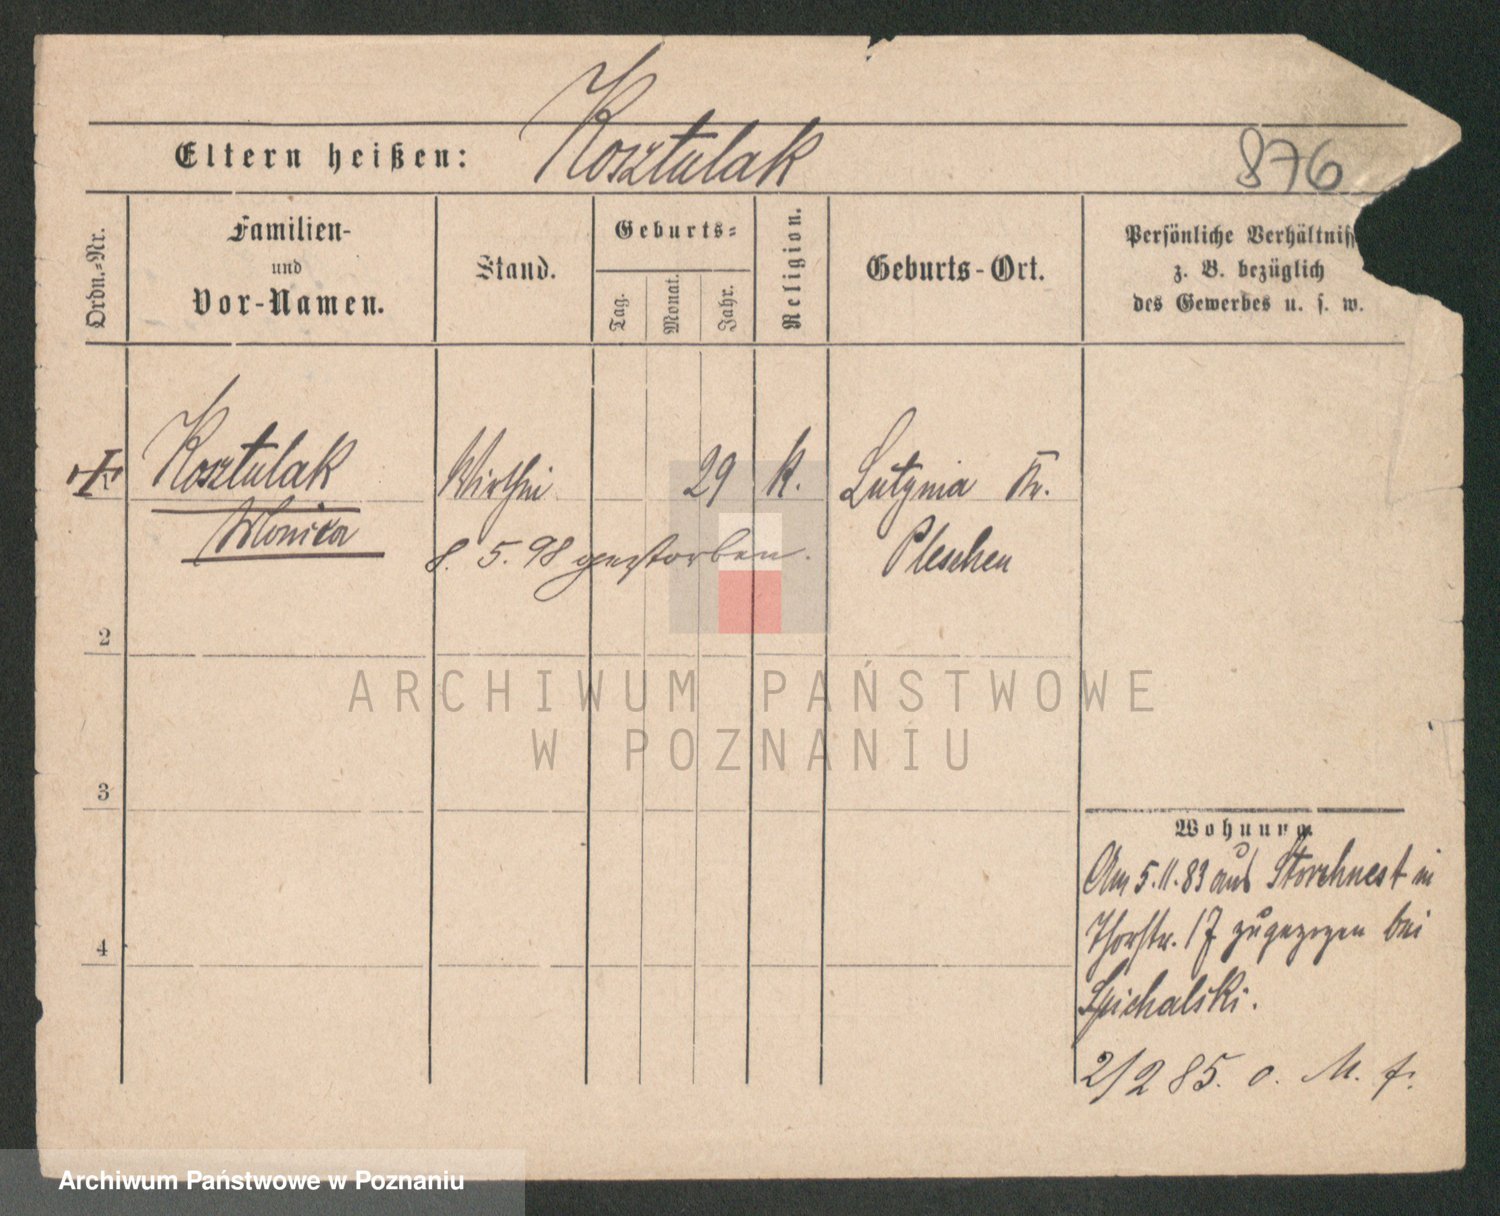 Eltern heißen: Kosztulak 876
Ordn.-Nr.
Familien-
und
Vor-Namen.
Stand.
Geburts-
Tag.
Monat.
Jahr.
Religion.
Geburts-Ort.
Persönliche Verhältniss
z. B. bezüglich
des Gewerbes u. s. w.
Kosztulak Wirthin 29 K. Lutynia Kr.
Monika 8. 5. 98 gestorben. Pleschen
2
3
4
Wohnung
Am 5.11.83 aus Storchnest in
Thorstr. 17 zugezogen bei
Spichalski.
2/2 85. o. M. f.
ARCHIWUM PAŃSTWOWE
W POZNANIU
Archiwum Państwowe w Poznaniu